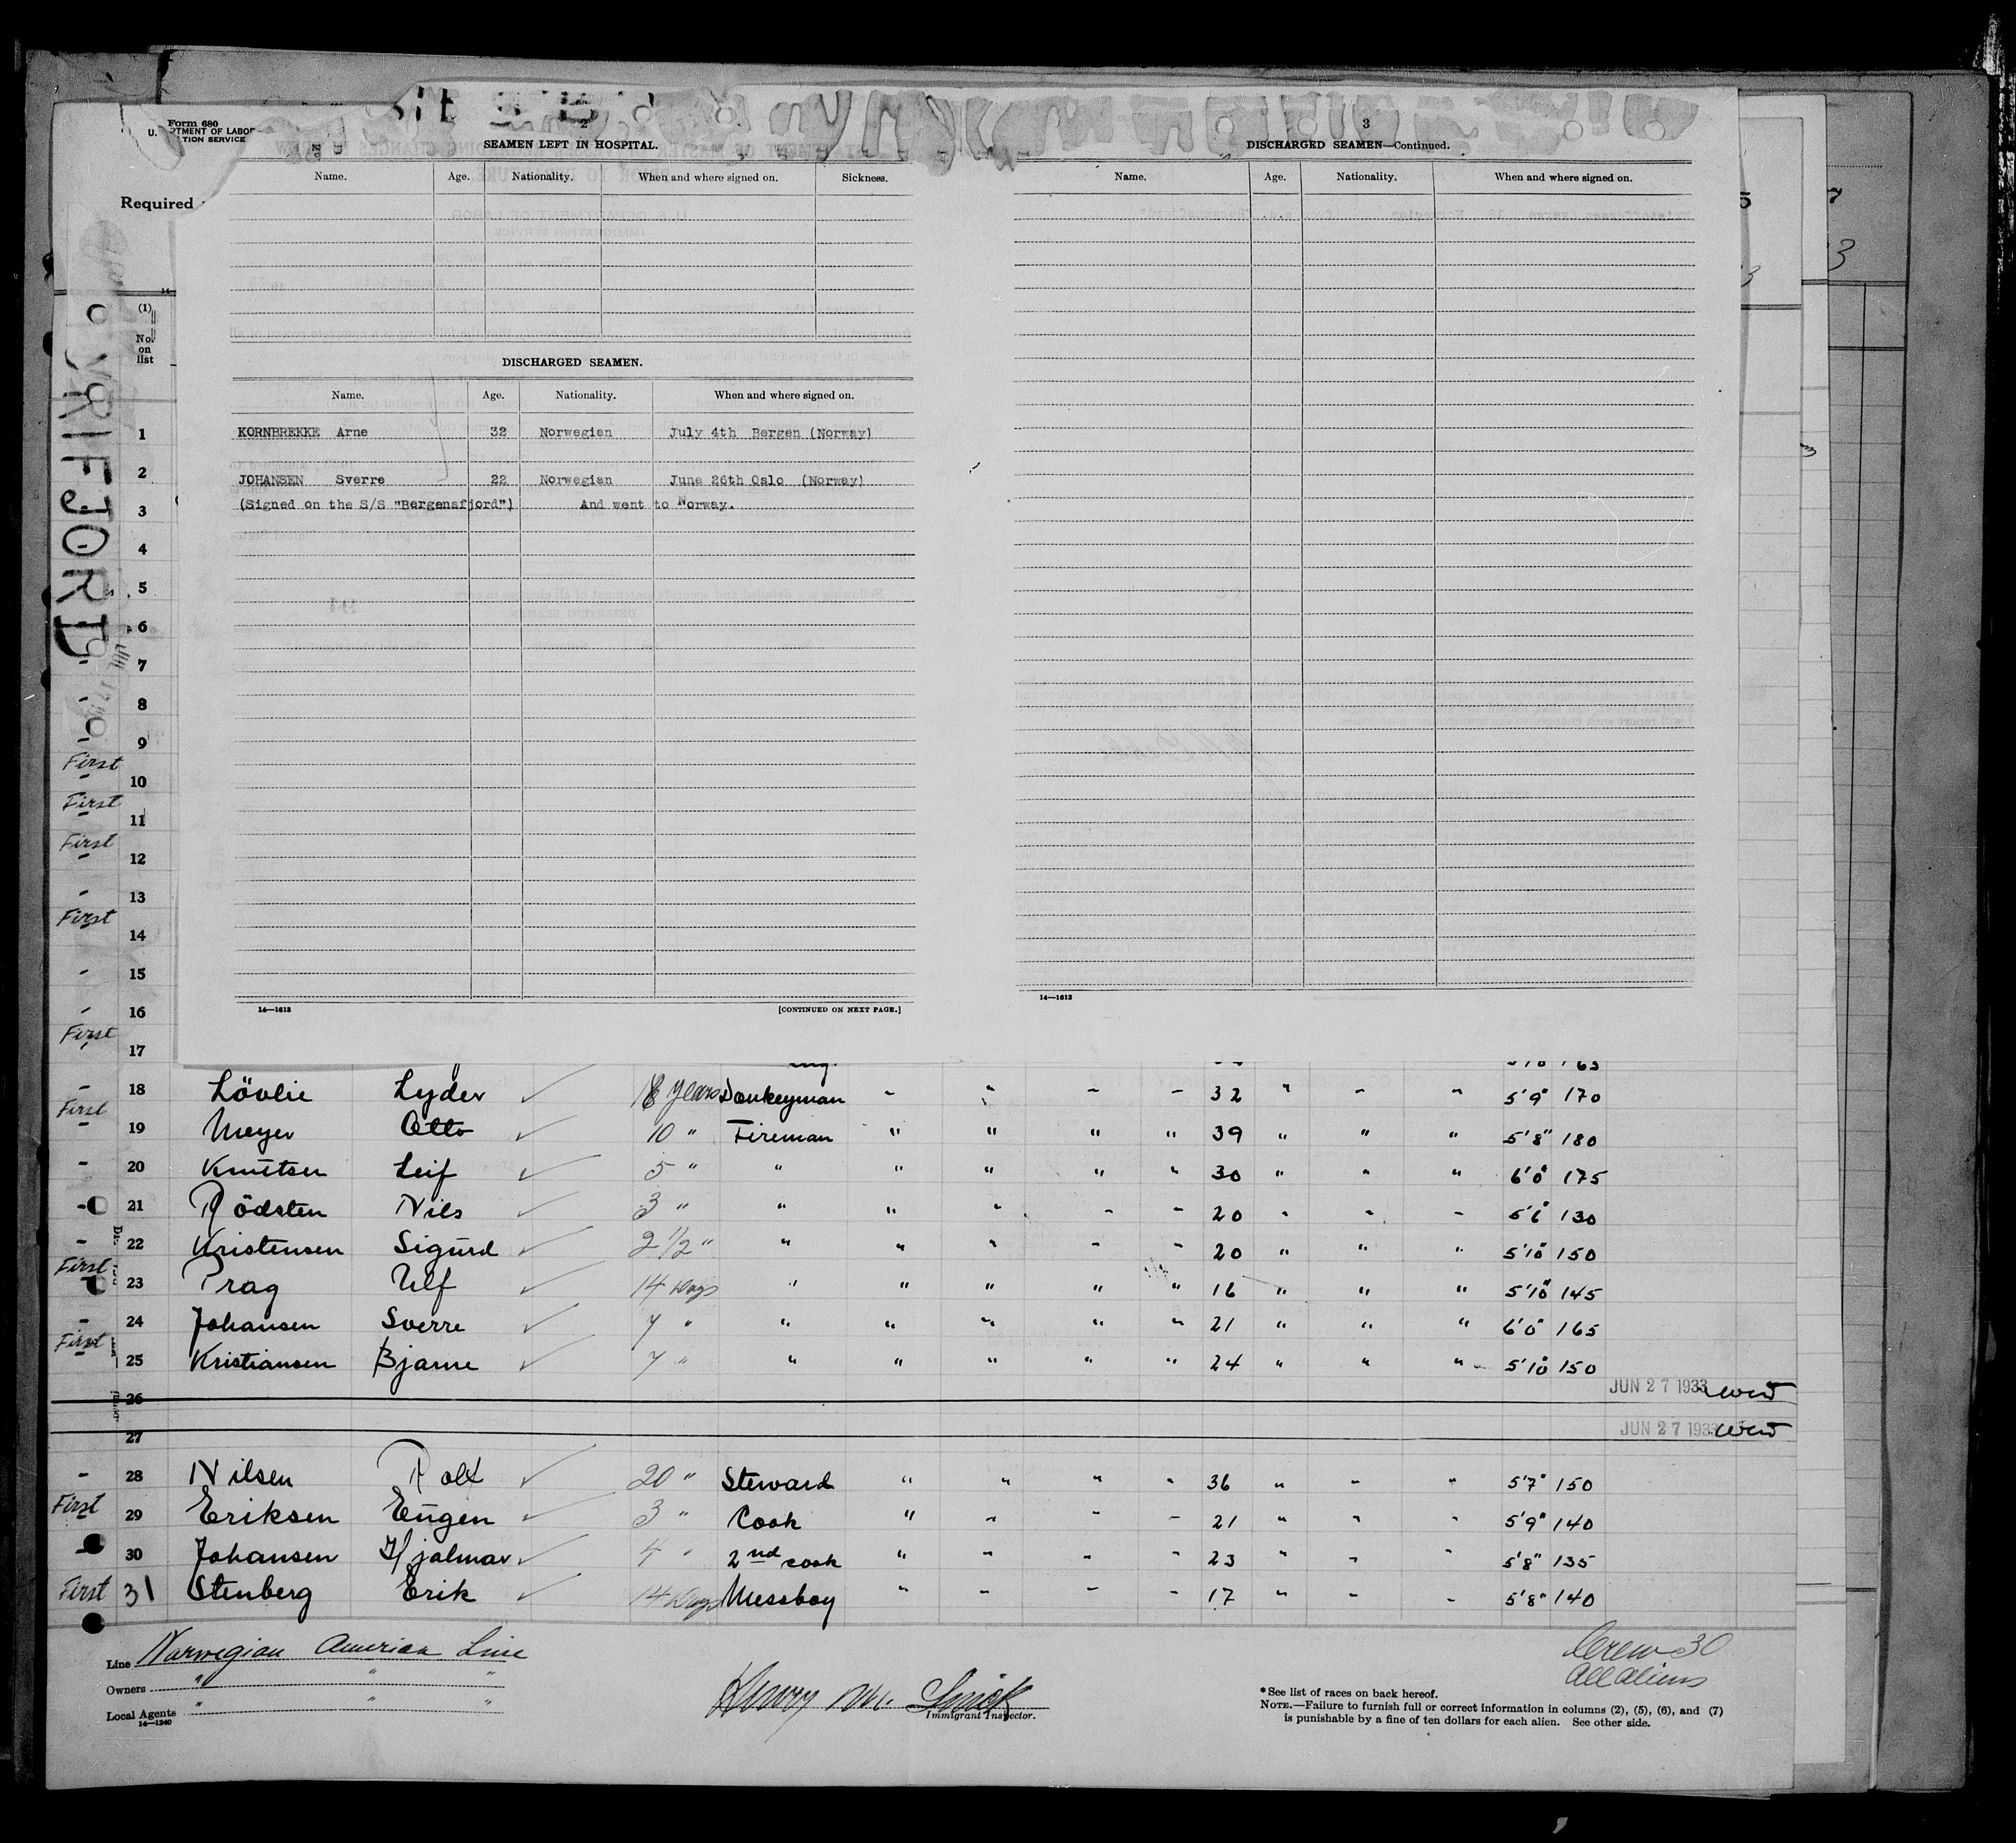 Form 680
U.
TION SERVICE
Required
2
SEAMEN LEFT IN HOSPITAL.
Name. Age. Nationality. When and where signed on. Sickness.
DISCHARGED SEAMEN.
Name. Age. Nationality. When and where signed on.
KORNBREKKE Arne 32 Norwegian July 4th Bergen (Norway)
JOHANSEN Sverre 22 Norwegian June 26th Oslo (Norway)
(Signed on the S/S "Bergensfjord") And went to Norway.
14—1613
[CONTINUED ON NEXT PAGE.]
3
DISCHARGED SEAMEN—Continued.
Name. Age. Nationality. When and where signed on.
14—1613
(1)
No.
on
list
1
2
3
4
5
6
7
8
9
First
10
First
11
First
12
13
First
14
15
16
First
17
18 Lövlie Lyder 18 years Donkeyman - " - - 32 " - " 5'9" 170
First
19 Meyer Otto 10 " Fireman " " " " 39 " " " 5'8" 180
20 Knutsen Leif 5 " " " " " " 30 " " " 6'0" 175
21 Rödsten Nils 3 " " " " - - 20 " " - 5'6" 130
22 Kristensen Sigurd 2 1/2 " " " " - - 20 " " " 5'10" 150
First
23 Prag Ulf 14 Days " " " " " 16 " " " 5'10" 145
24 Johansen Sverre 7 " " " " " " 21 " " " 6'0" 165
First
25 Kristiansen Bjarne 7 " " " " " " 24 " " " 5'10" 150
26 JUN 27 1933
27 JUN 27 1933
28 Nilsen Rolf 20 " Steward " " " " 36 " - " 5'7" 150
First
29 Eriksen Eugen 3 " Cook " " - - 21 " " " 5'9" 140
30 Johansen Hjalmar 4 " 2nd cook " - - - 23 " - " 5'8" 135
First 31 Stenberg Erik 14 Days Messboy " - - - 17 " - - 5'8" 140
Line Norwegian American Line
Owners " " "
Local Agents " " "
14—1240
Immigrant Inspector.
Crew 30
All aliens
*See list of races on back hereof.
NOTE.—Failure to furnish full or correct information in columns (2), (5), (6), and (7)
is punishable by a fine of ten dollars for each alien. See other side.